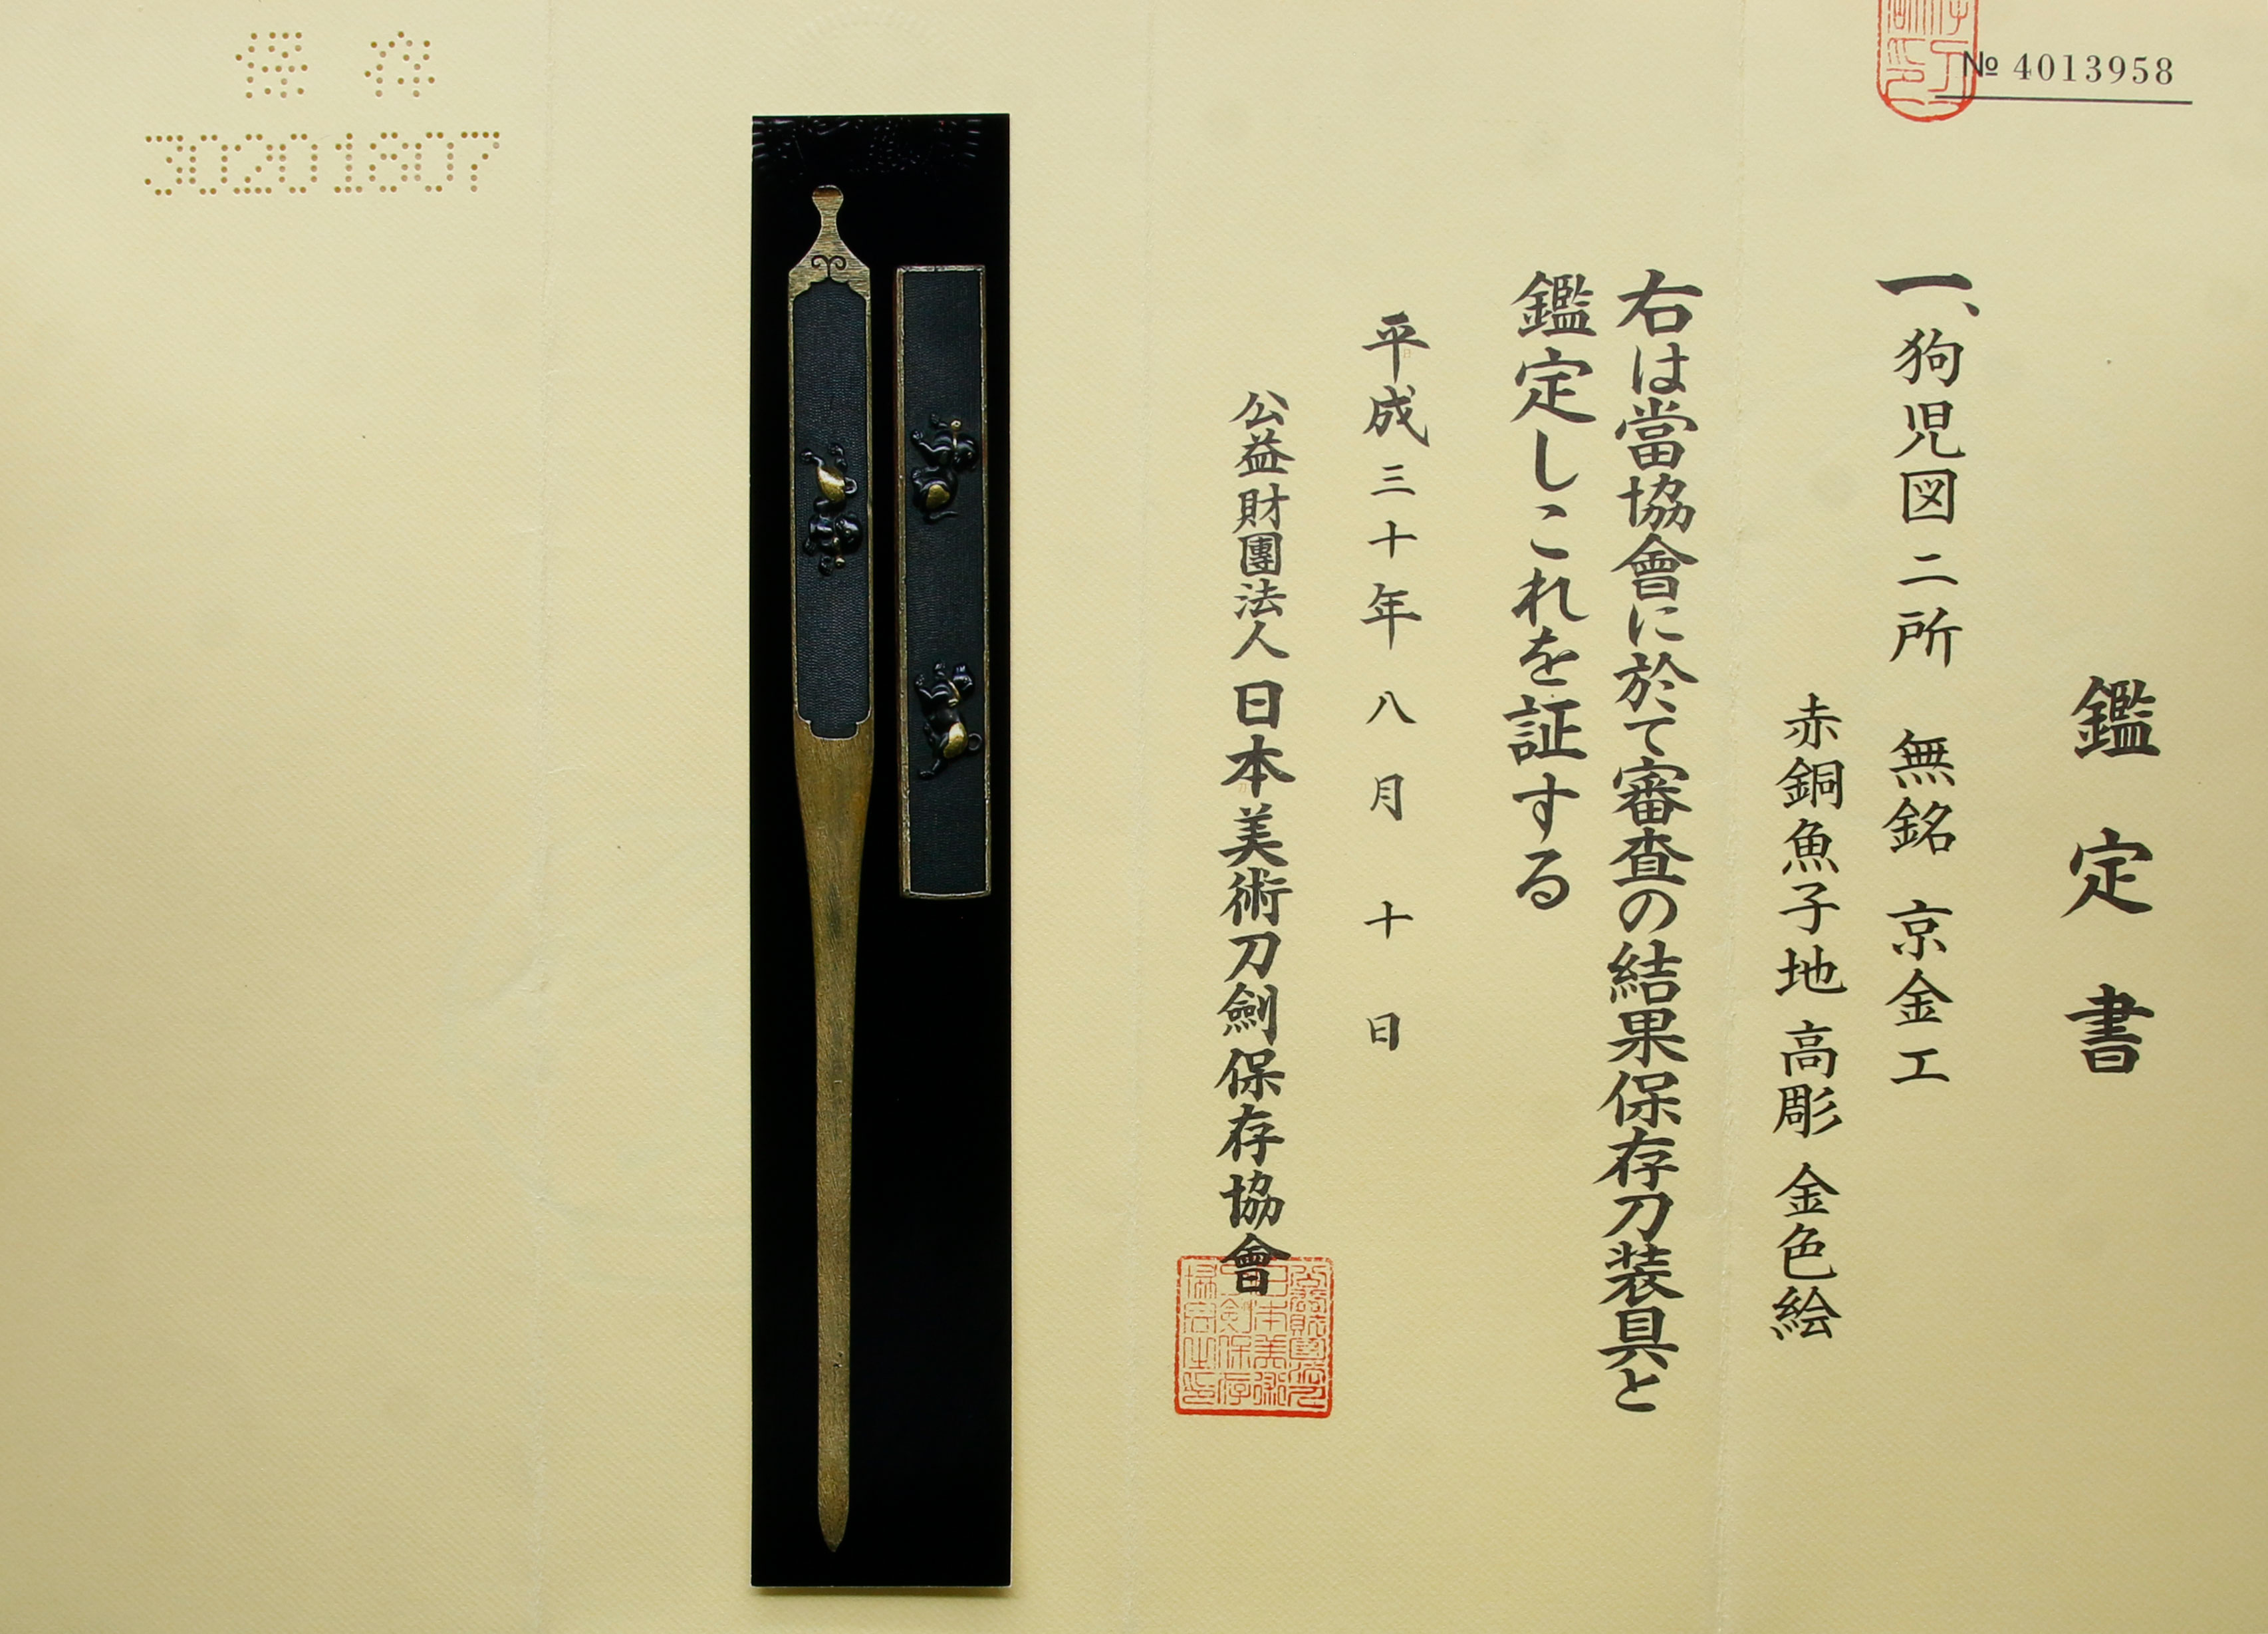 № 4013958
鑑定書
一、狗児図二所 無銘 京金工
赤銅魚子地 高彫 金色絵
右は當協會に於て審査の結果保存刀装具と
鑑定しこれを証する
平成三十年八月十日
公益財團法人日本美術刀劍保存協會
保存
30201807